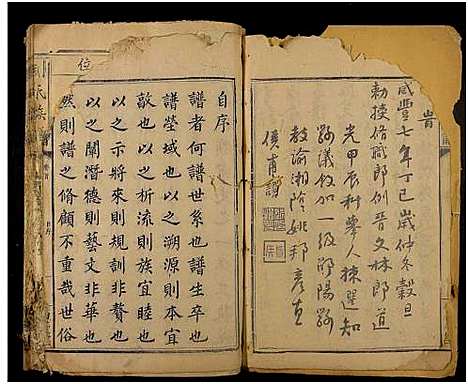 肯
咸豐七年丁巳歲仲冬穀旦
勅授脩職郎例晋文林郎道
光甲辰科舉人揀選知
縣議敘加一級邵陽縣
教諭湘陰姚邦彥直
侯甫譔
自序
譜者何譜世系也譜生卒也
譜塋域也以之溯源則本宜
敬也以之析流則族宜睦也
以之示將來則規訓非贅也
以之闡潛德則藝文非華也
然則譜之脩顧不重哉世俗
位
氏族